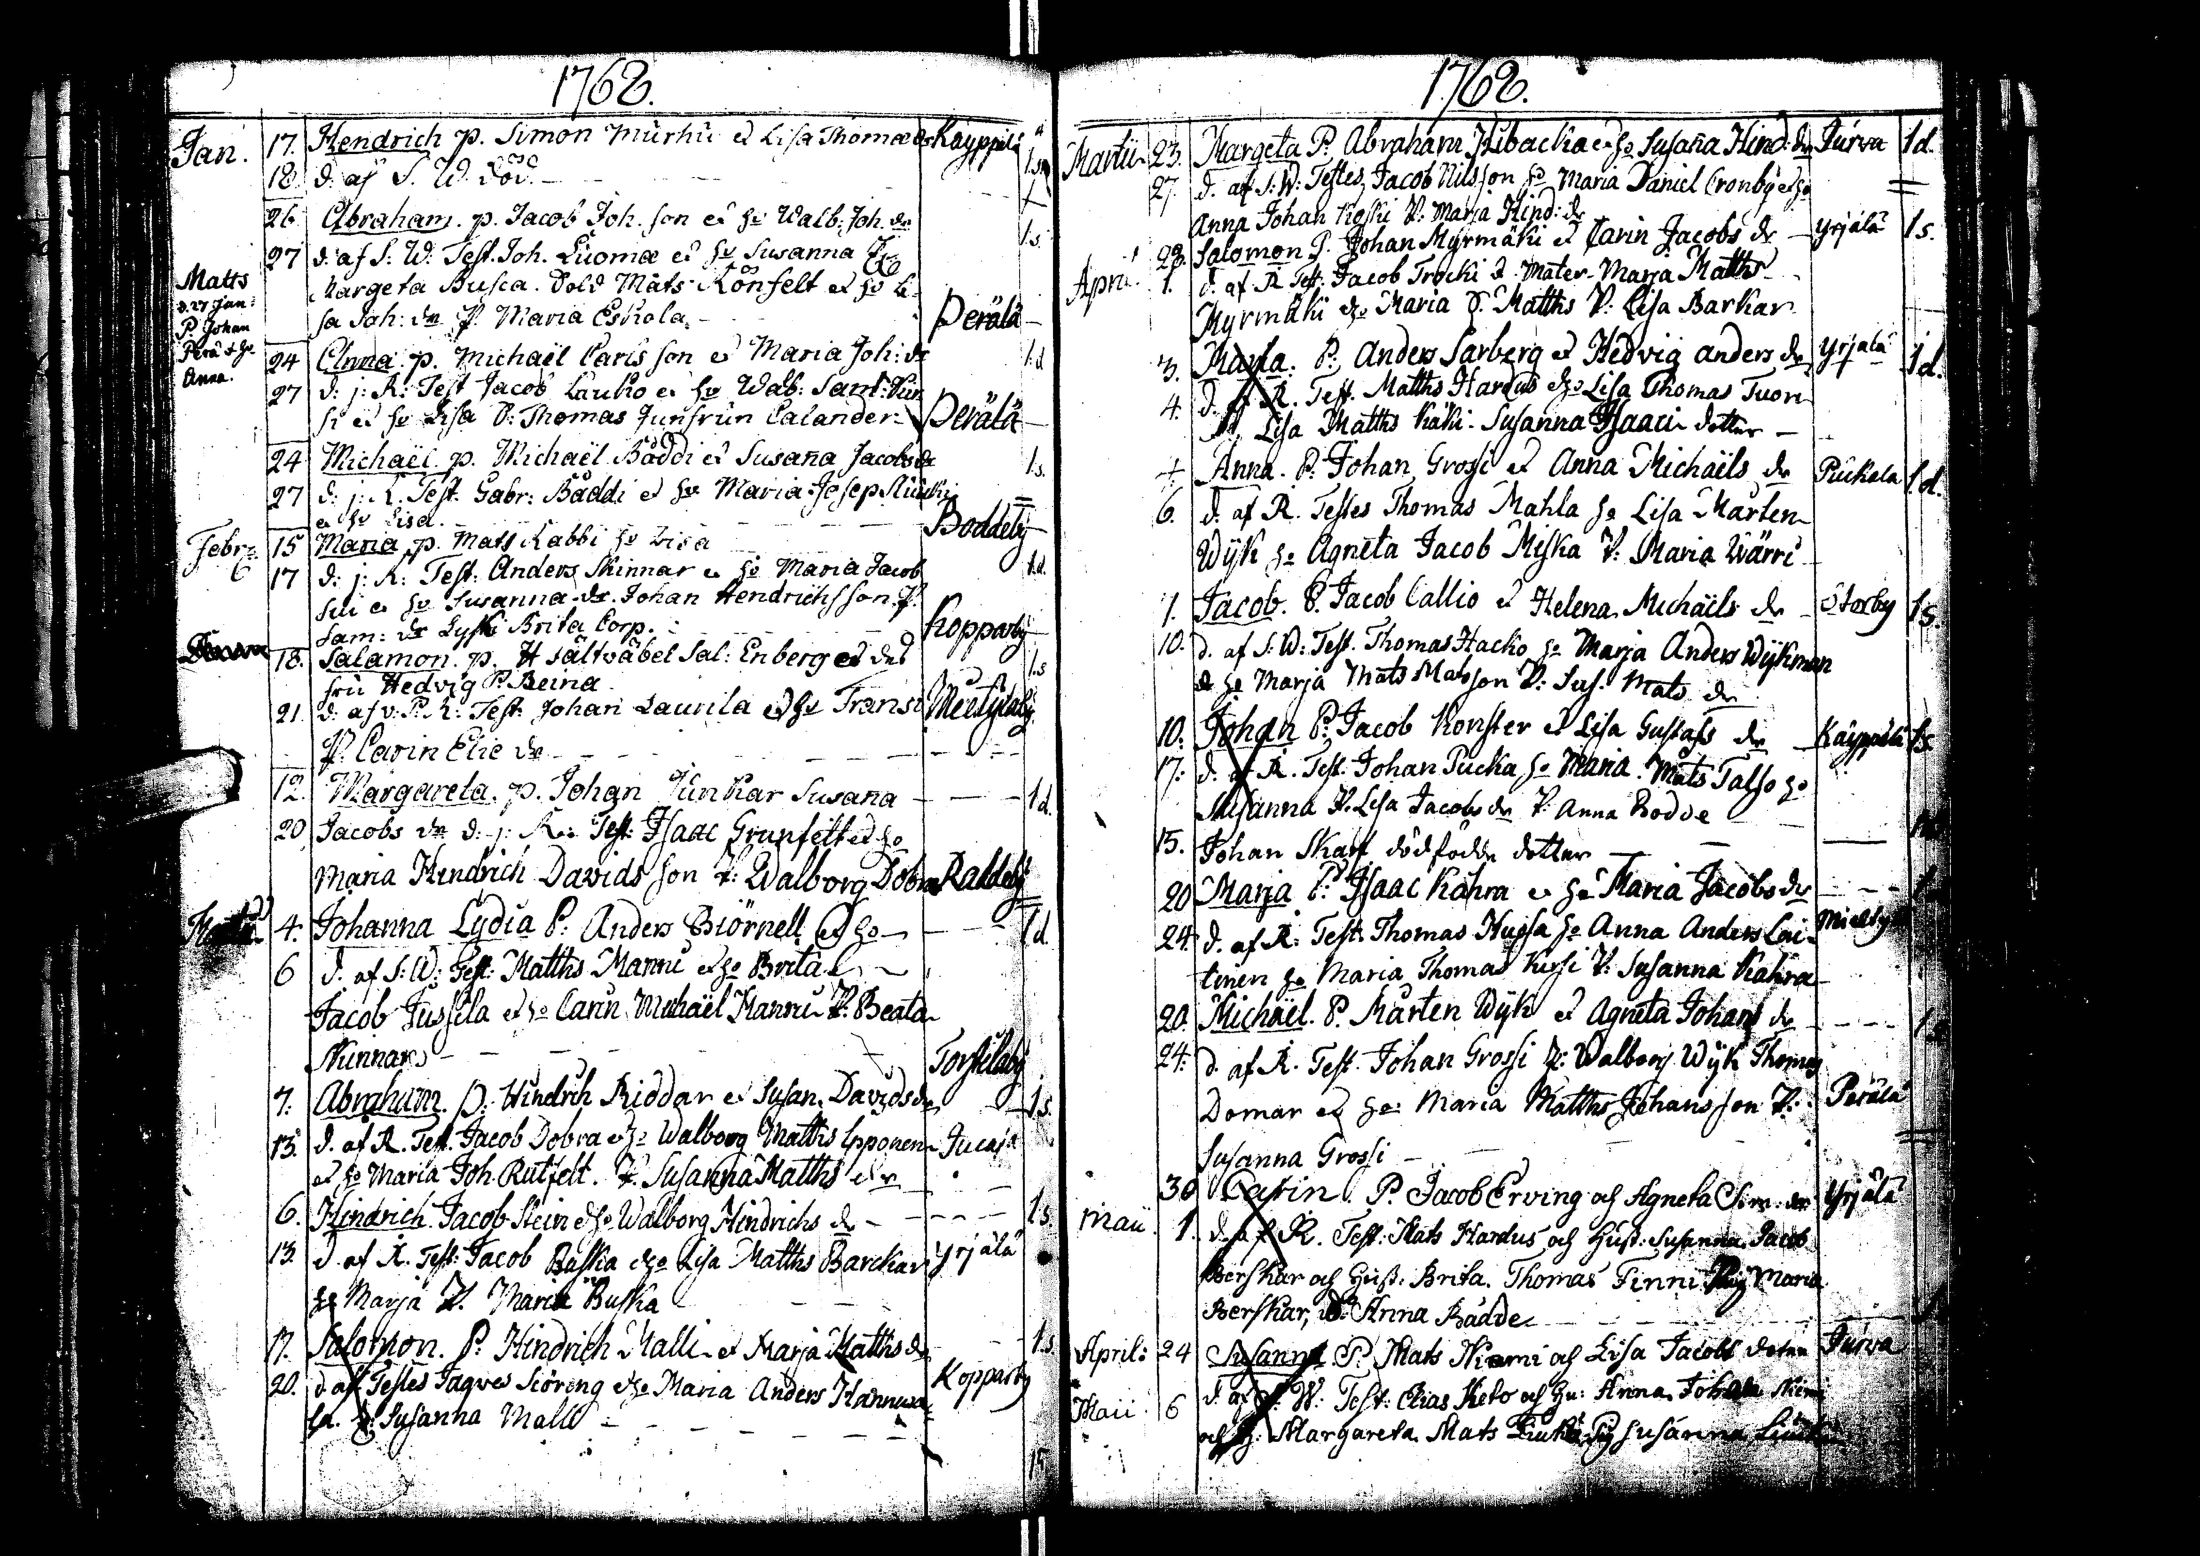 1762.
Jan. 17. Hendrich p. Simon Murhu et Lisa Thomæ dr Käyppilä 1.s.
18. d. af S. W. död.
26. Abraham. p. Jacob Joh. son et ho Walb. Joh. dr 1s.
27 d. af S. W. Test. Joh. Luomæ et ho Susanna
Margeta Busca. Dold Mats Rönfelt et ho Li-
sa Joh: dr P. Maria Eskola. Perälä
Matts
d. 27 Jan:
P. Johan
Perä et ho
Anna.
24 Anna. p. Michaël Caris son et Maria Joh: dr 1.d
27 d: j: R: Test Jacob Lauko et ho Walb: Saml:
si et ho Lisa P: Thomas Junfrun Calander Perälä
24 Michaël. p. Michaël Bäddi et Susana Jacobs dr 1s.
27 d: j: R. Test: Gabr: Bäddi et ho Maria Josep
et ho Lisa. Boddeby
Febr. 15 Maria p. Mats Rabbi ho Lisa
17 d: j: R: Test: Anders Skinnar et ho Maria Jacob 1.d.
et ho Susanna dr. Johan Hendrichsson. P.
Sam: dr Brita Corp. Kopparby
18. Salamon. p. H fältwäbel Sal: Enberg et des 1.s
fru Hedvig P. Beina
21. d: af v: P. R: Test: Johan Laurila et ho
P. Carin Elie dr
12. Margareta. p. Johan Junkar Susana 1d.
20 Jacobs dr d: j: R: Test: Isaac Grunfelt et ho
Maria Hindrich Davids son P: Walborg Dobra Raldeby
4. Johanna Lydia P: Anders Biörnell et ho 1d.
6 d. af S: W: Test: Matths Mannu et ho Brita
Jacob Jussila et ho Carin Michaël Mannu P. Beata
Skinnar Torskilaby
7. Abraham. p: Hindrich Riddar et Susan. Davids dr 1s.
13. d. af R. Test. Jacob Dobra et ho Walborg Matths Ipponen Jucaja
et ho Maria Joh. Rutfelt. P. Susanna Matths dr
6. Hindrich Jacob Stein et ho Walborg Hindrichs dr 1s.
13. d. af R. Test: Jacob Baska et ho Lisa Matths Barckar Yrjälä
ho Marja P. Maria Buska
17. Salomon. P. Hindrich Malli et Marja Matths dr 1s.
20. d af Testes Jagwes Sciöreng et ho Maria Anders Hannuxe- Kopparby
la. P: Susanna Malli
15
1762.
Martii 23. Margeta P. Abraham Hibacka et ho Susana Hind: dr Jurva 1d.
27. d. af S: W: Testes Jacob Nilsson ho Maria Daniel Cronby et ho
Anna Johan Koski P: Maria Hind: dr
28. Salomon P. Johan Myrmäki et Carin Jacobs dr Yrjälä 1s.
April 1. d. af R Test: Jacob Trocki d. Mater. Marja Matths
Myrmäki ho Maria d. Matths P: Lisa Barkar
3. Maria. P: Anders Sarberg et Hedvig anders dr Yrjälä 1d.
4. d. af R. Test. Matths Hardus et ho Lisa Thomas Tuon-
Lisa Matths Käki. Susanna Isaaci dotter
Anna. P. Johan Grossi et Anna Michaëls dr Puckala 1.d.
6. d. af R. Testes Thomas Mahla ho Lisa Mårten
Wÿk ho Agneta Jacob Miska P: Maria Wärri
7. Jacob. P. Jacob Callio et Helena Michaëls dr Storby 1s.
10. d. af S: W: Test. Thomas Hacko ho Marja Anders Wÿkman
et ho Marja Mats Matsson P: Sus. Mats dr
10. Johan P. Jacob Konster et Lisa Gustafs dr Käyppälä 1s
17. d. af R. Test. Johan Pucka ho Maria. Mats Talso ho
Susanna P. Lisa Jacobs dr P: Anna Bodde
15. Johan Skarf dödfödde dotter
20 Marja P: Isaac Kähra et ho Maria Jacobs dr
24. d. af R: Test: Thomas Hussa ho Anna Anders Lai- Mietby
tinen ho Maria Thomas Kirsi P: Susanna Kahra
20. Michaël. P. Mårten Wÿk et Agneta Johans dr 1s
24: d. af R. Test. Johan Grossi P: Walborg Wÿk Thomas
Domar et ho Maria Matths Johansson P: Perälä
Susanna Grossi
30 Carin P. Jacob Erving och Agneta Sim: dr Yrjälä
Maii 1. d. af R. Test: Mats Hardus och Hust: Susanna Jacob
Berskar och Hust. Brita. Thomas Finni Pig Maria
Berskar, D: Anna Bädde
April: 24 Susanna P. Mats Niemi och Lisa Jacobs doter Jurva
Maii 6 d. af S. W: Test: Elias Keto och Hu: Anna Johan Niemi
och H: Margareta Mats Pig Susanna